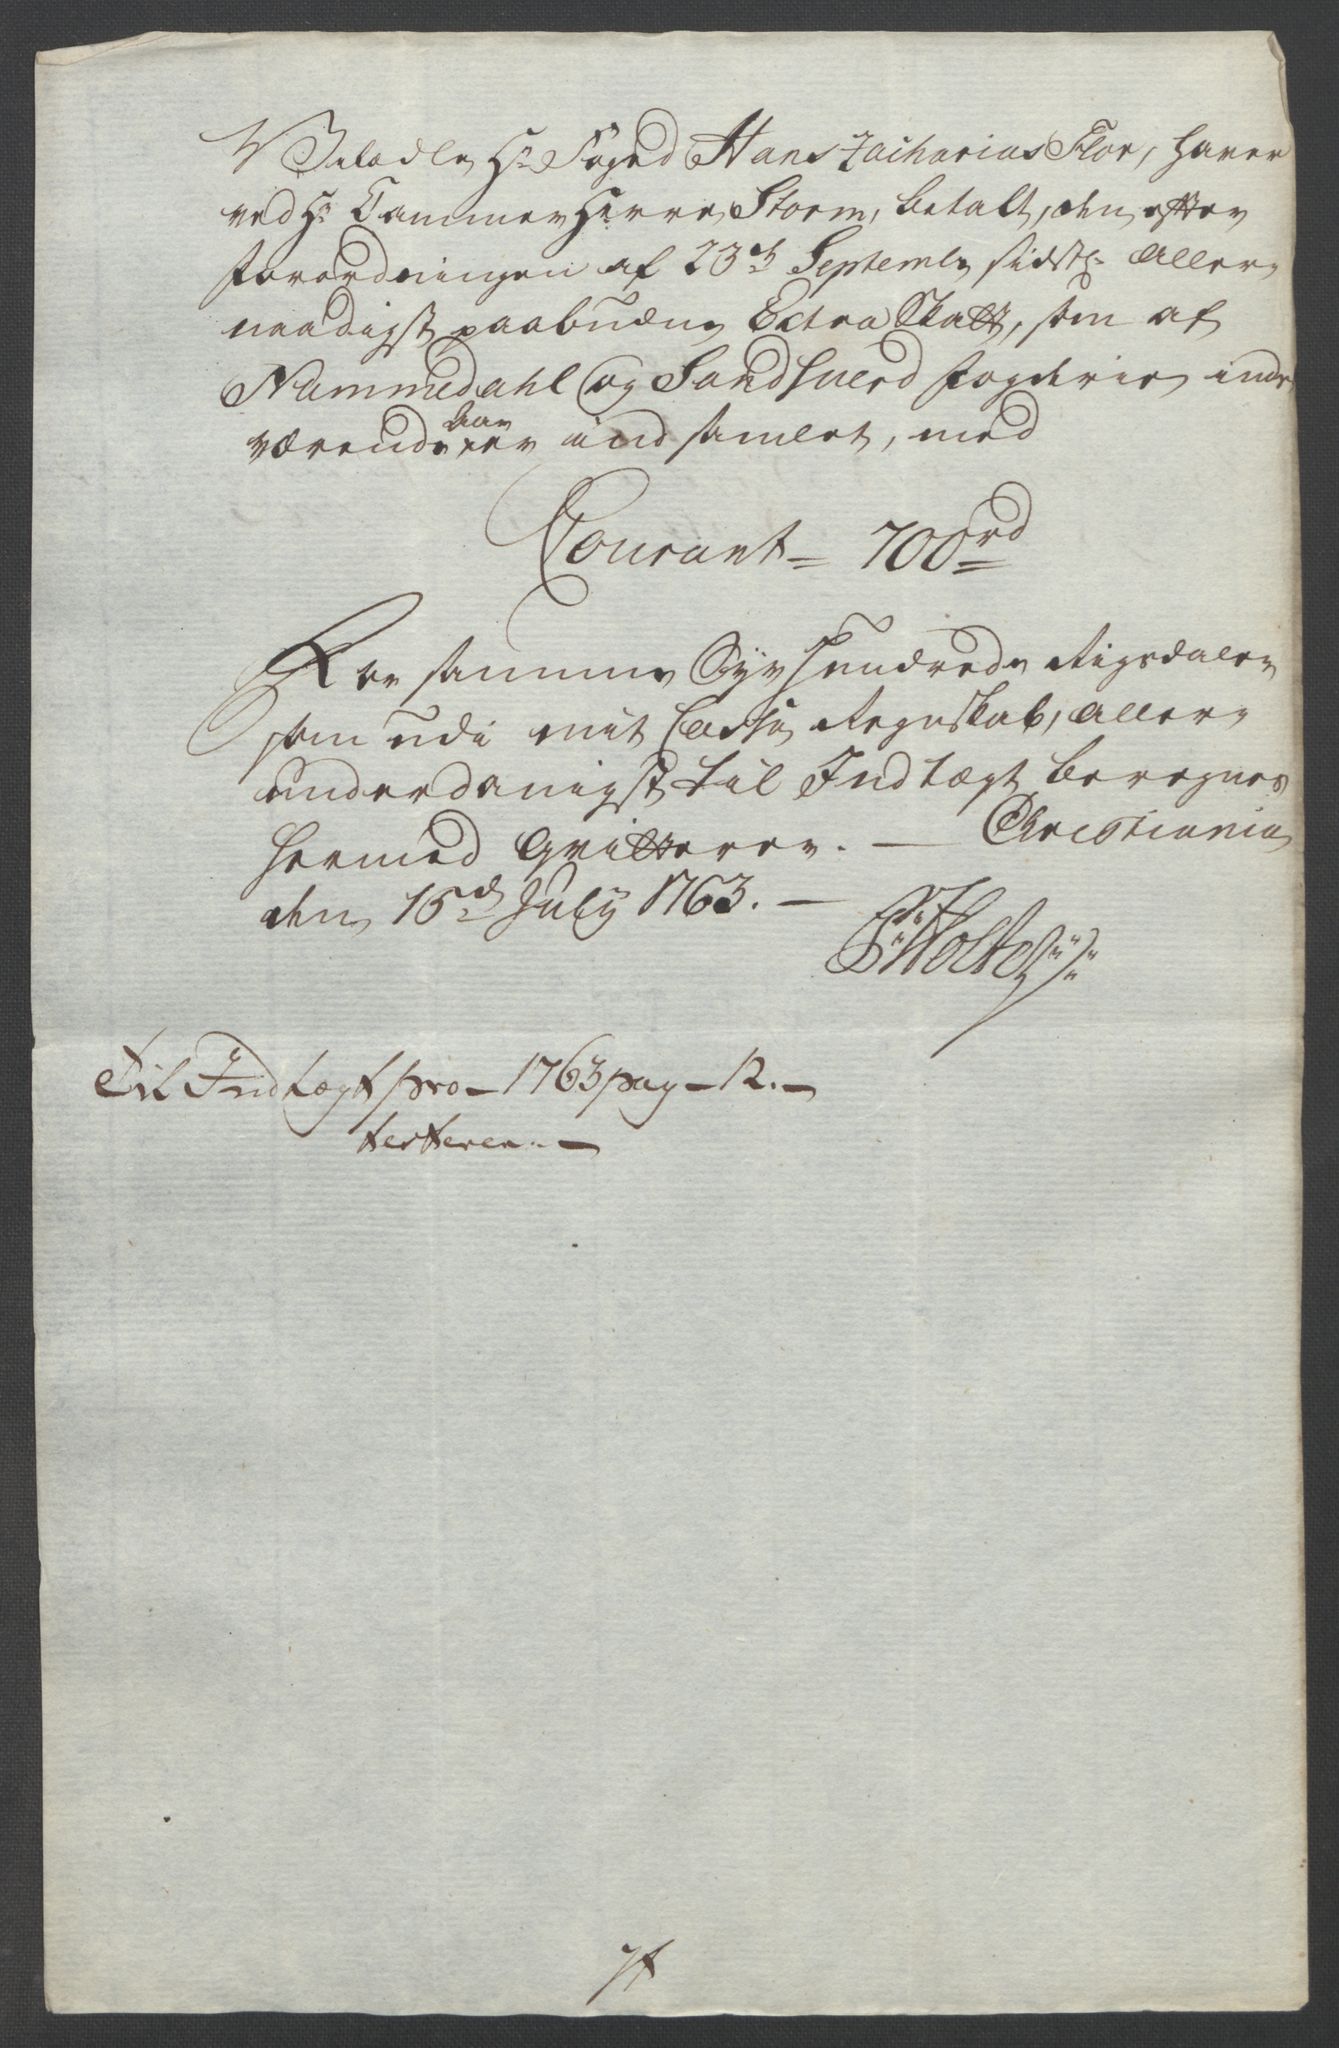 Velædle Hr: Foged Hans Zacharias Flor, haver
ved Hr: Cammer Herre Storm, betalt, den efter
forordningen af 23de Septembr sidstl: aller-
naadigst paabudne Extra Skatt, som af
Nummedahl og Sandsuerd fogderie inde-
værende aar
er indsamlet, med
Courant = 700rd
For samme Syv Hundrede Rigsdaler
som udi mit Cassa Regnskab, aller-
underdanigst til Indtægt beregnes
hermed qvitterer. — Christiania
den 15de July 1763. —
Holte
Til Indtægt pro - 1763 pag - 12. -
testerer. —